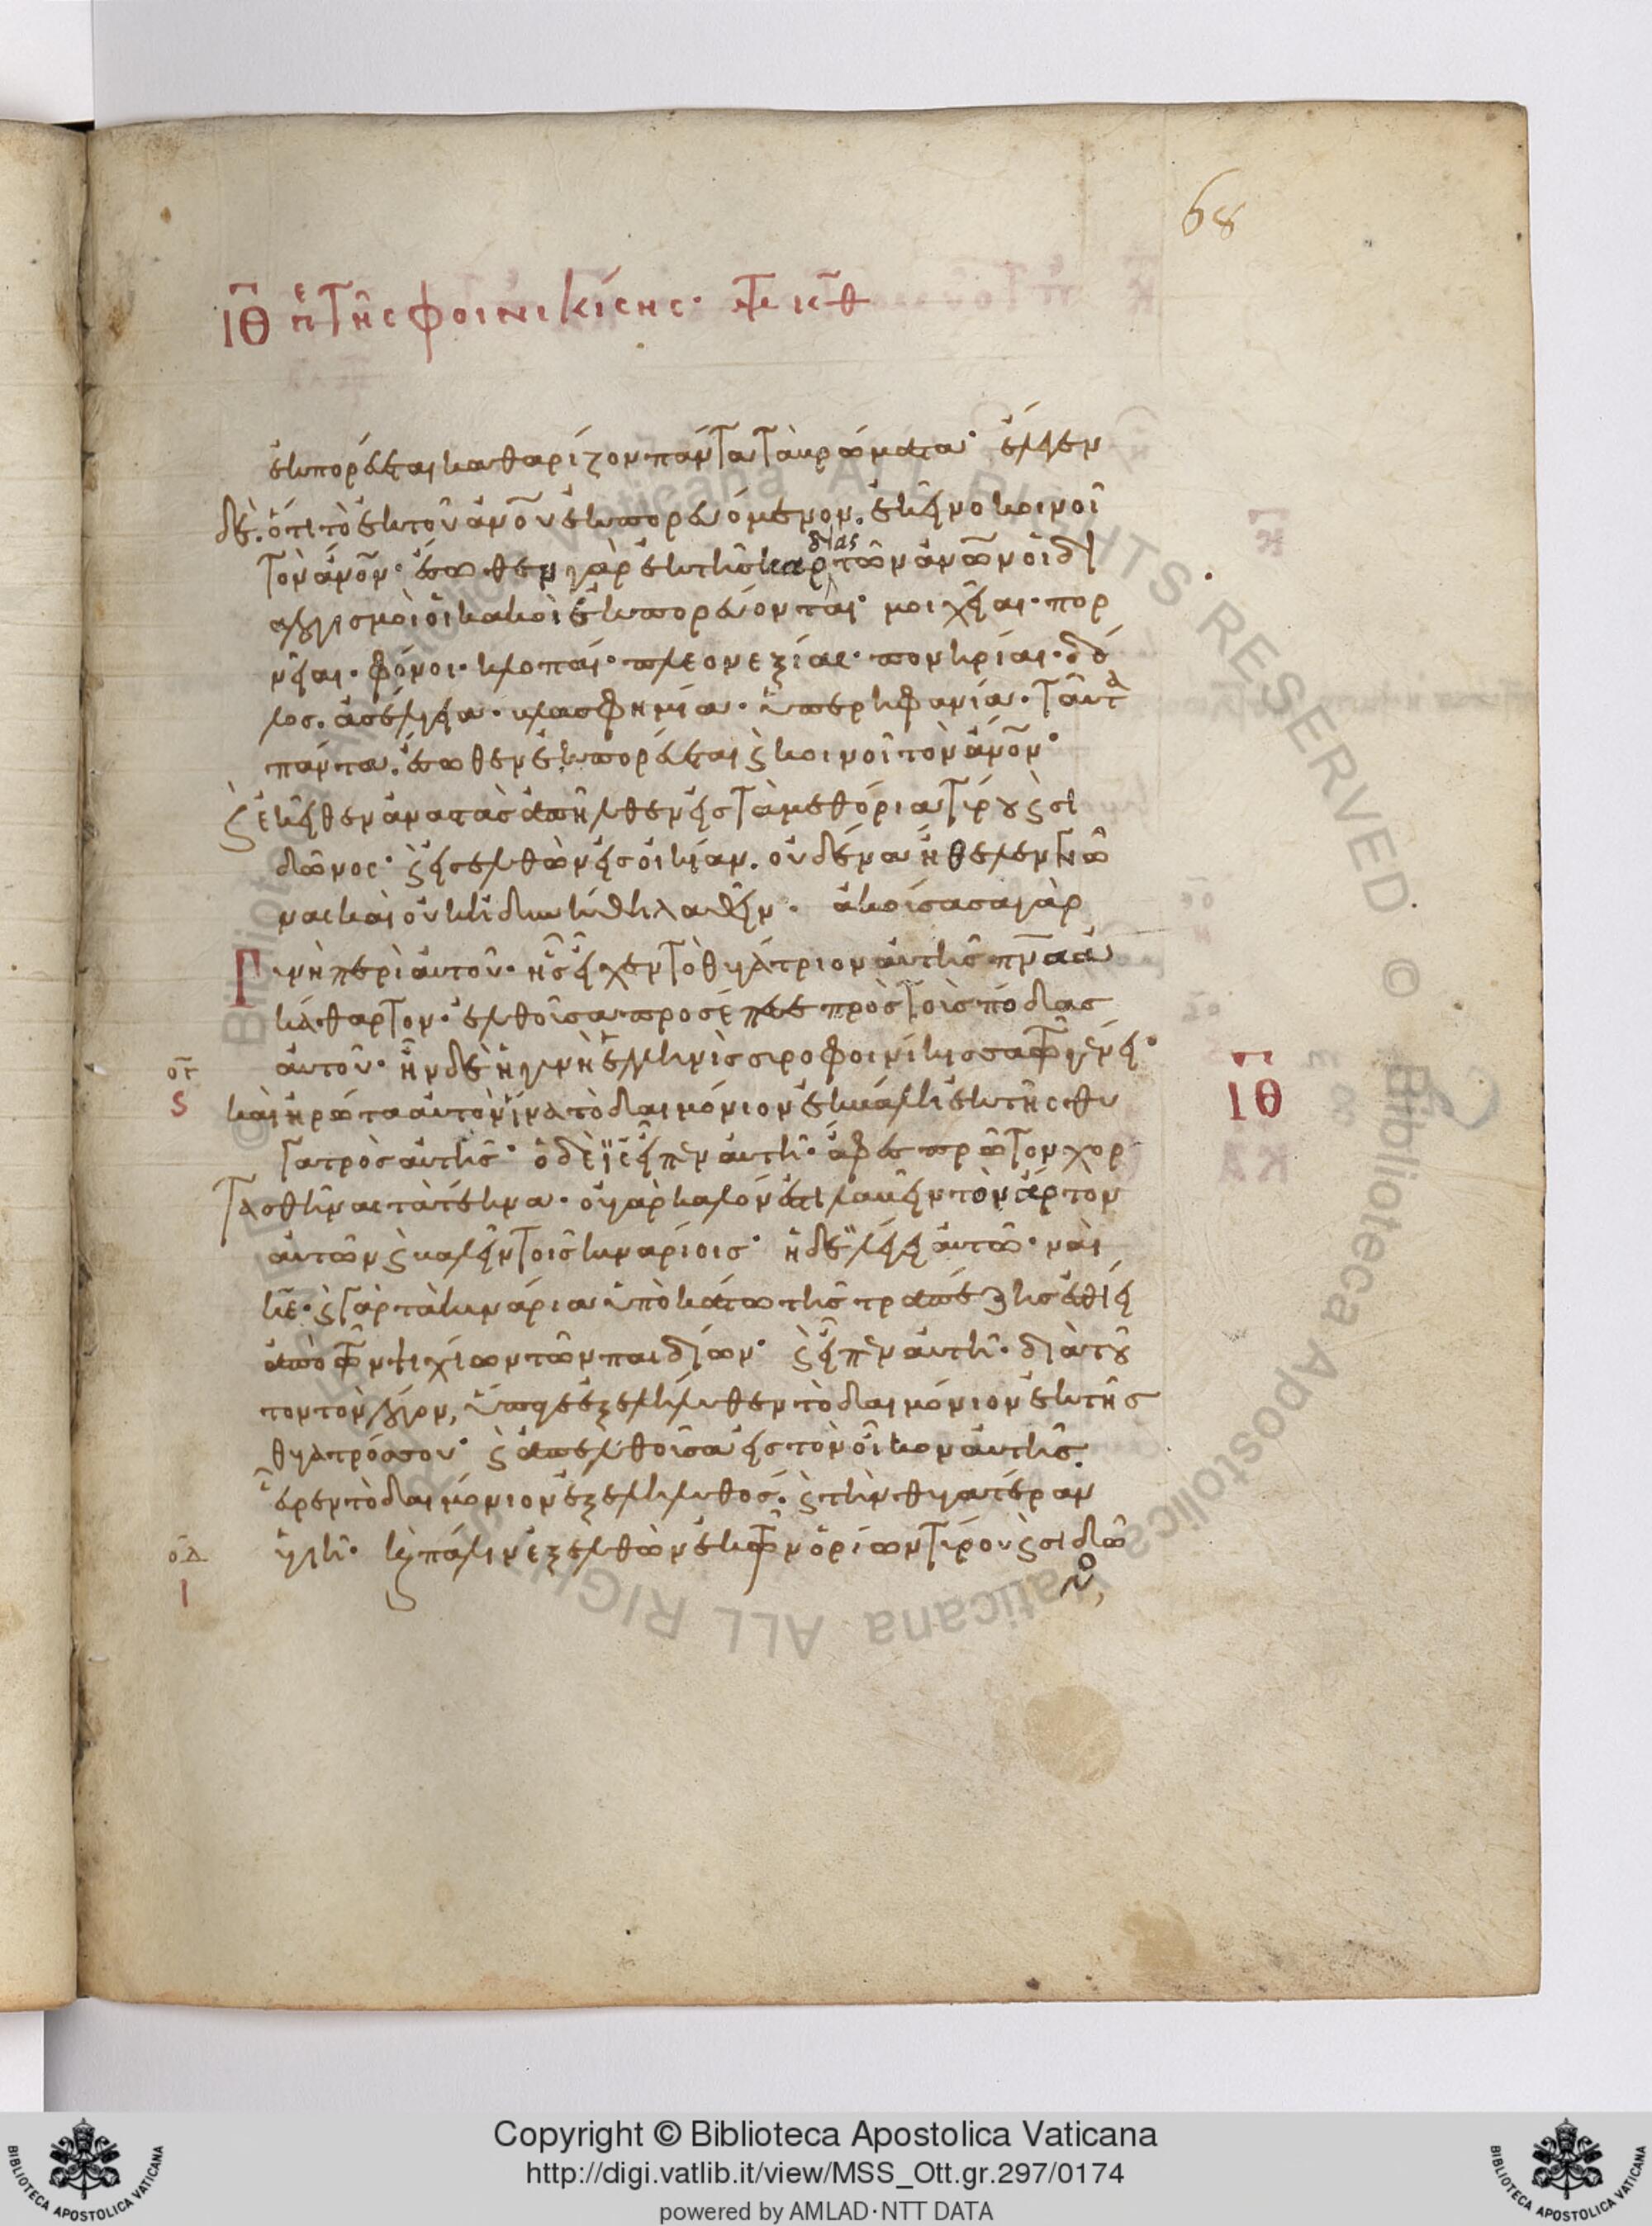 68
ΙΘ π τῆς φοινικίσης·
ἐκπορεύεται καθαρίζον πάντα τὰ βρώματα· ἔλεγεν
δὲ. ὅτι τὸ ἐκ τοῦ ἀνου ἐκπορευόμενον. ἐκεῖνο κοινοῖ
τὸν ἄνον· ἔσωθεν γὰρ ἐκ τῆς καρδίας τῶν ἀνων οἱ δι
αλογισμοὶ οἱ κακοὶ ἐκπορεύονται· μοιχεῖαι· πορ
νεῖαι· φόνοι· κλοπαί· πλεονεξίαι· πονηρίαι· δό
λος. ἀσέλγεια· βλασφημία· ὑπερηφανία· ταῦτα
πάντα. ἔσωθεν ἐκπορεύεται ϗ κοινοῖ τὸν ἄνον·
ϗ ἐκεῖθεν ἀναστὰς ἀπῆλθεν εἰς τὰ μεθόρια τύρου ϗ σι
δῶνος· ϗ εἰσελθὼν εἰς οἰκίαν. οὐδένα ἤθελεν γνῶ
ναι καὶ οὐκ ἠδυνήθη λαθεῖν· ἀκούσασα γὰρ
Γυνὴ περὶ αὐτοῦ· ἧς εἶχεν τὸ θυγάτριον αὐτῆς πνα ἀ
κάθαρτον· ἐλθοῦσα προσέπεσε πρὸς τοὺς πόδας
αὐτοῦ· ἦν δὲ ἡ γυνὴ ἑλληνὶς συροφοινίκισσα τῶ γένει·
καὶ ἠρώτα αὐτὸν ἵνα τὸ δαιμόνιον ἐκβάλλῃ ἐκ τῆς θυ
γατρὸς αὐτῆς· ὁ δὲ ις εἶπεν αὐτῆ· ἄφες πρῶτον χορ
τασθῆναι τὰ τέκνα· οὐ γὰρ καλόν ἐστι λαβεῖν τὸν ἄρτον
αὐτῶν ϗ βαλεῖν τοῖς κυναρίοις· ἡ δὲ λέγει αὐτῶ· ναὶ
κε· ϗ γὰρ τὰ κυνάρια ὑποκάτω τῆς τραπέζης ἐσθίει
ἀπὸ τῶν ψιχίων τῶν παιδίων· ϗ εἶπεν αὐτῆ· διὰ τοῦ
τον τὸν λόγον, ὕπαγε ἐξελήλυθεν τὸ δαιμόνιον ἐκ τῆς
θυγατρός σου· ϗ ἀπελθοῦσα εἰς τὸν οἶκον αὐτῆς.
εὗρεν τὸ δαιμόνιον ἐξεληλυθός. ϗ τὴν θυγατέραν
ὑγιῆ· ϗ πάλιν ἐξελθὼν ἐκ τῶν ὁρίων τύρου ϗ σιδῶ
νο,
ΟΓ
ς
ΟΔ
Ι
ΙΘ
Copyright © Biblioteca Apostolica Vaticana
http://digi.vatlib.it/view/MSS_Ott.gr.297/0174
powered by AMLAD·NTT DATA
BIBLIOTECA APOSTOLICA VATICANA
BIBLIOTECA APOSTOLICA VATICANA
© Biblioteca Apostolica Vaticana ALL RIGHTS RESERVED © Biblioteca Apostolica Vaticana ALL RIGHTS RESERVED